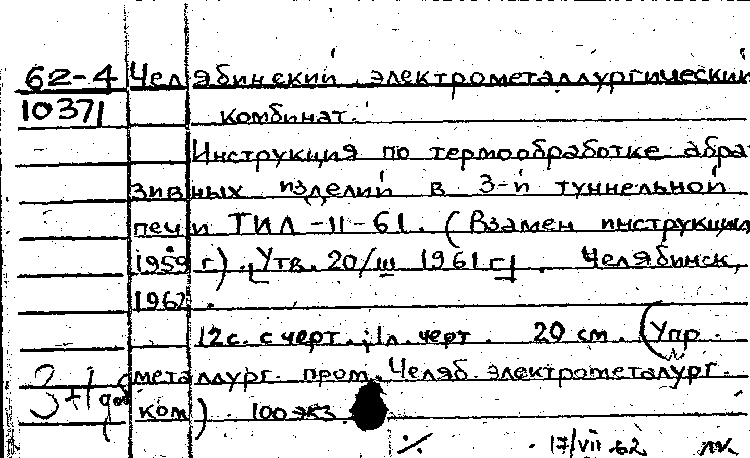 62-4 Челябинский электрометаллургический
10371 комбинат.
Инструкция по термообработке абра-
зивных изделий в 3-й туннельной
печи ТИЛ-11-61. (Взамен инструкции
1959 г). [Утв. 20/III 1961 г]. Челябинск,
1962.
12 с. с черт.; 1 л. черт. 20 см. (Упр.
металлург. пром. Челяб. электрометалург.
ком) 100 экз.
3+1
17/VII 62